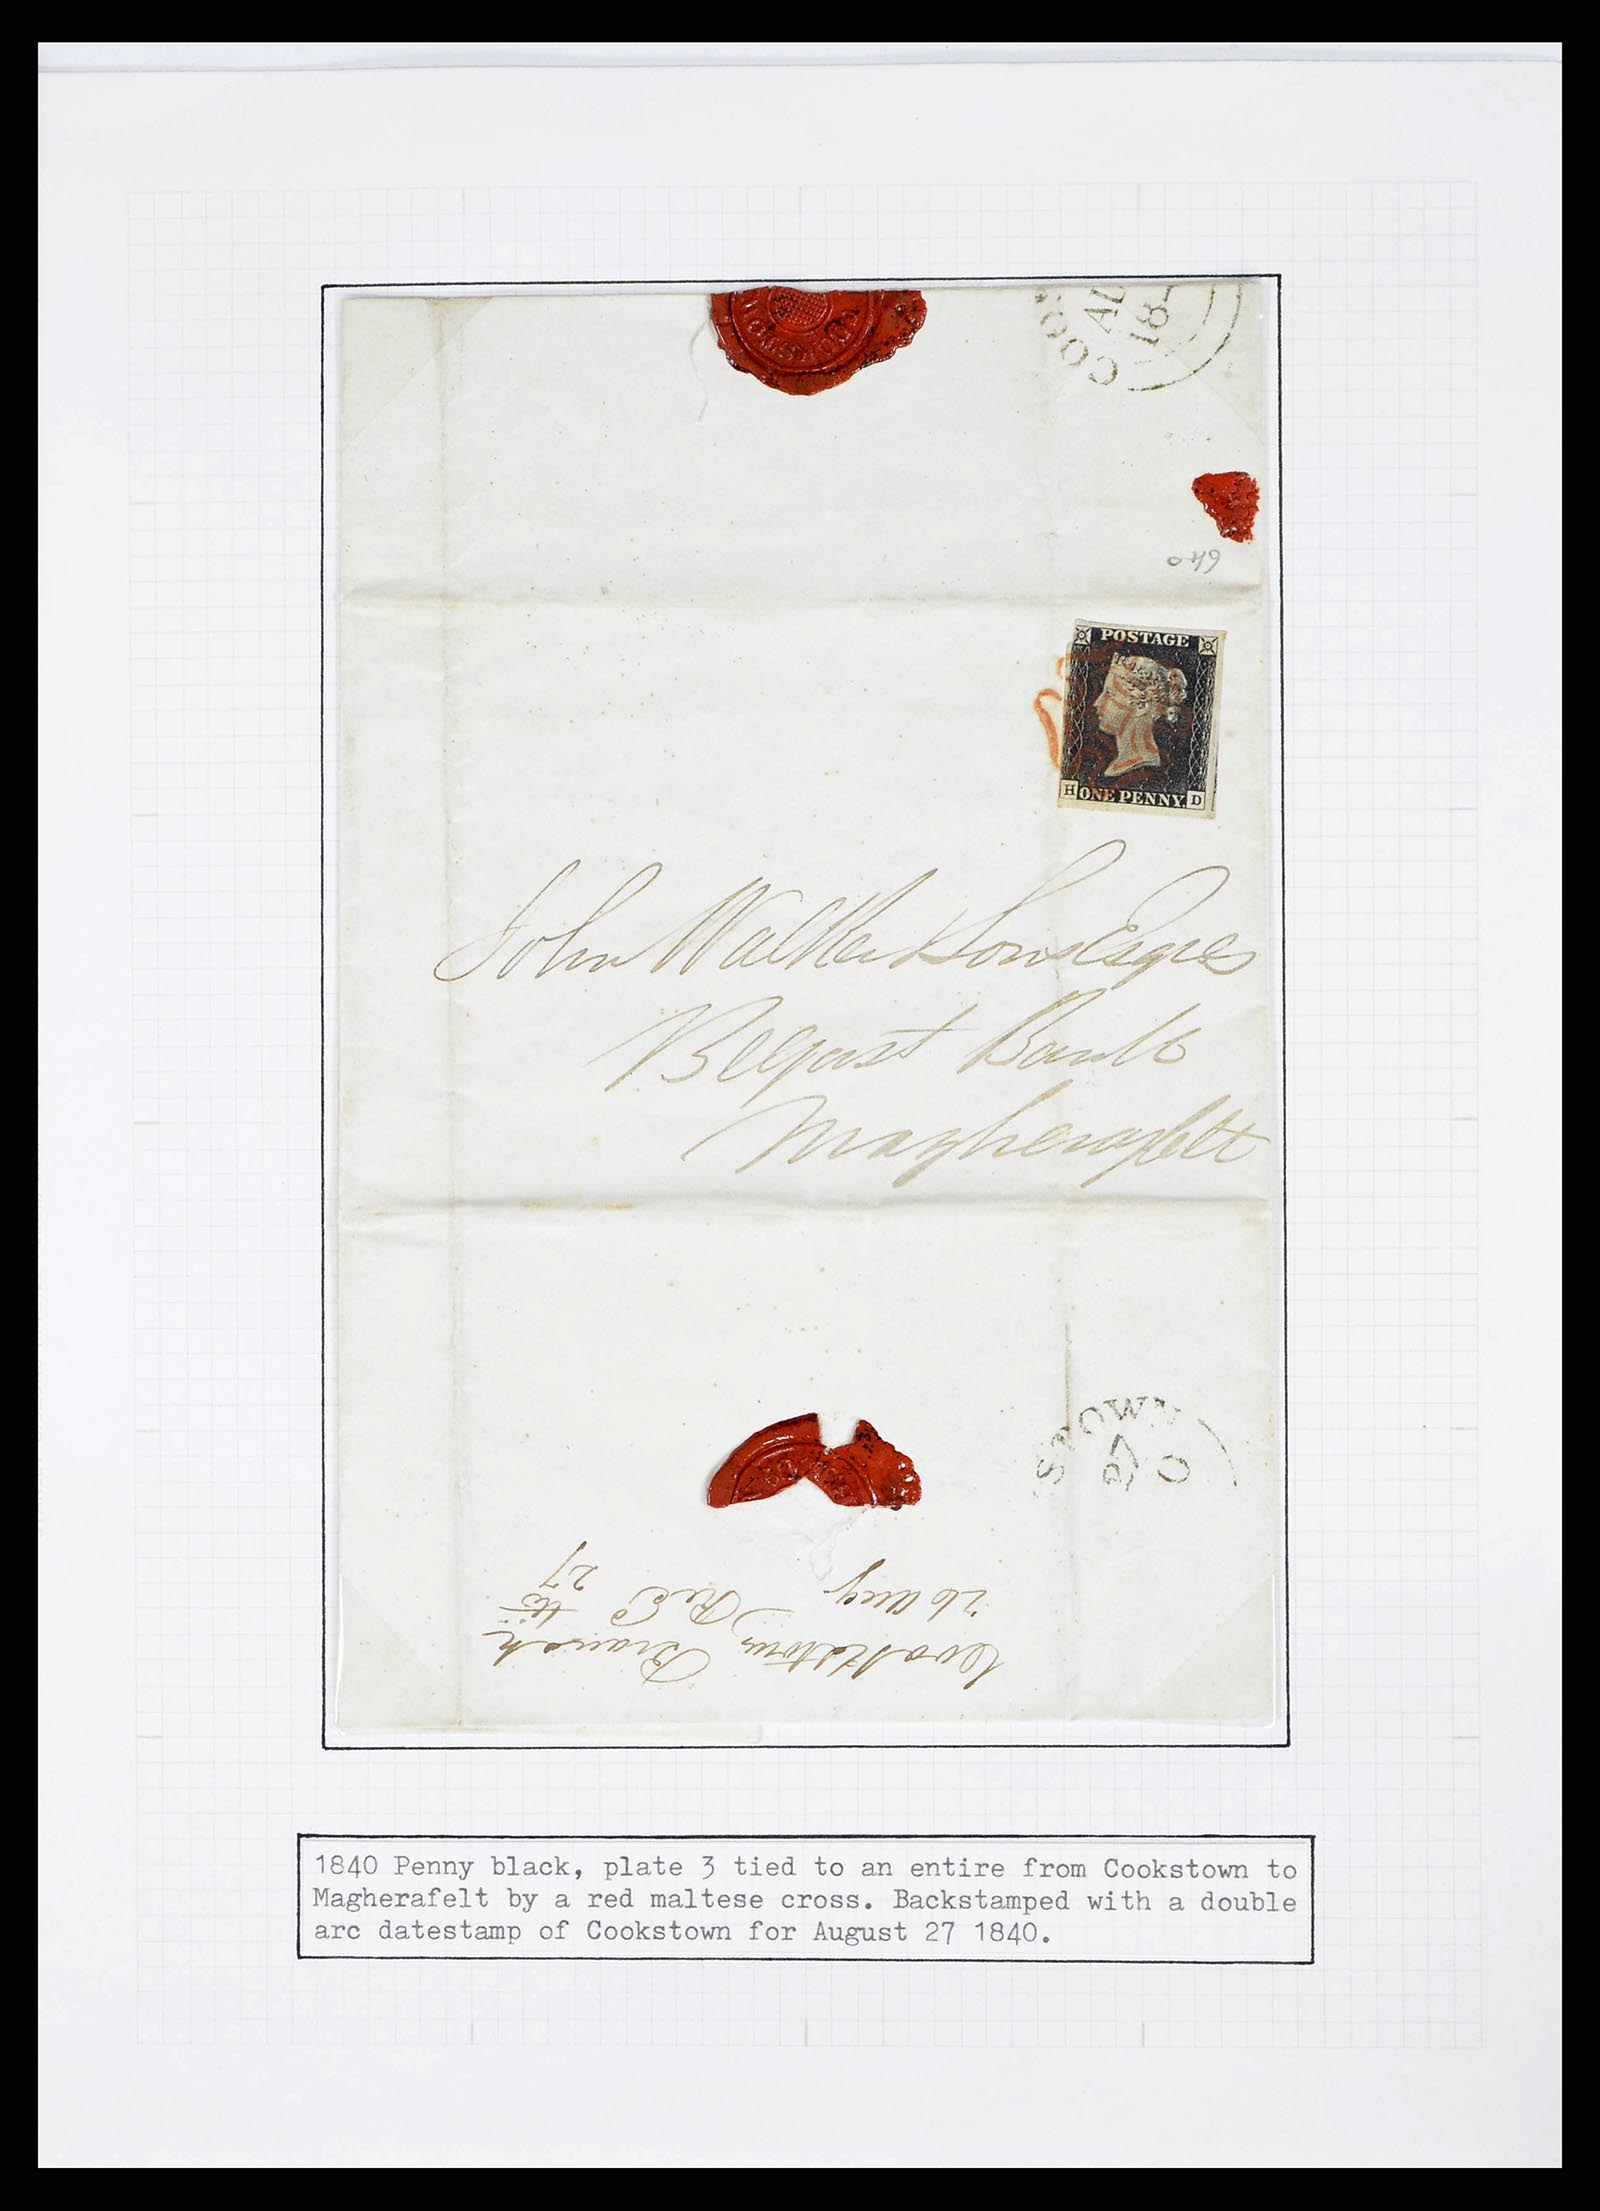 COO
AU
18
POSTAGE
H ONE PENNY. D
John Walker Esqre
Belfast Bank
Magherafelt
STOWN
27
0
Cookstown Branch
26 Aug Recd
27
1840 Penny black, plate 3 tied to an entire from Cookstown to
Magherafelt by a red maltese cross. Backstamped with a double
arc datestamp of Cookstown for August 27 1840.